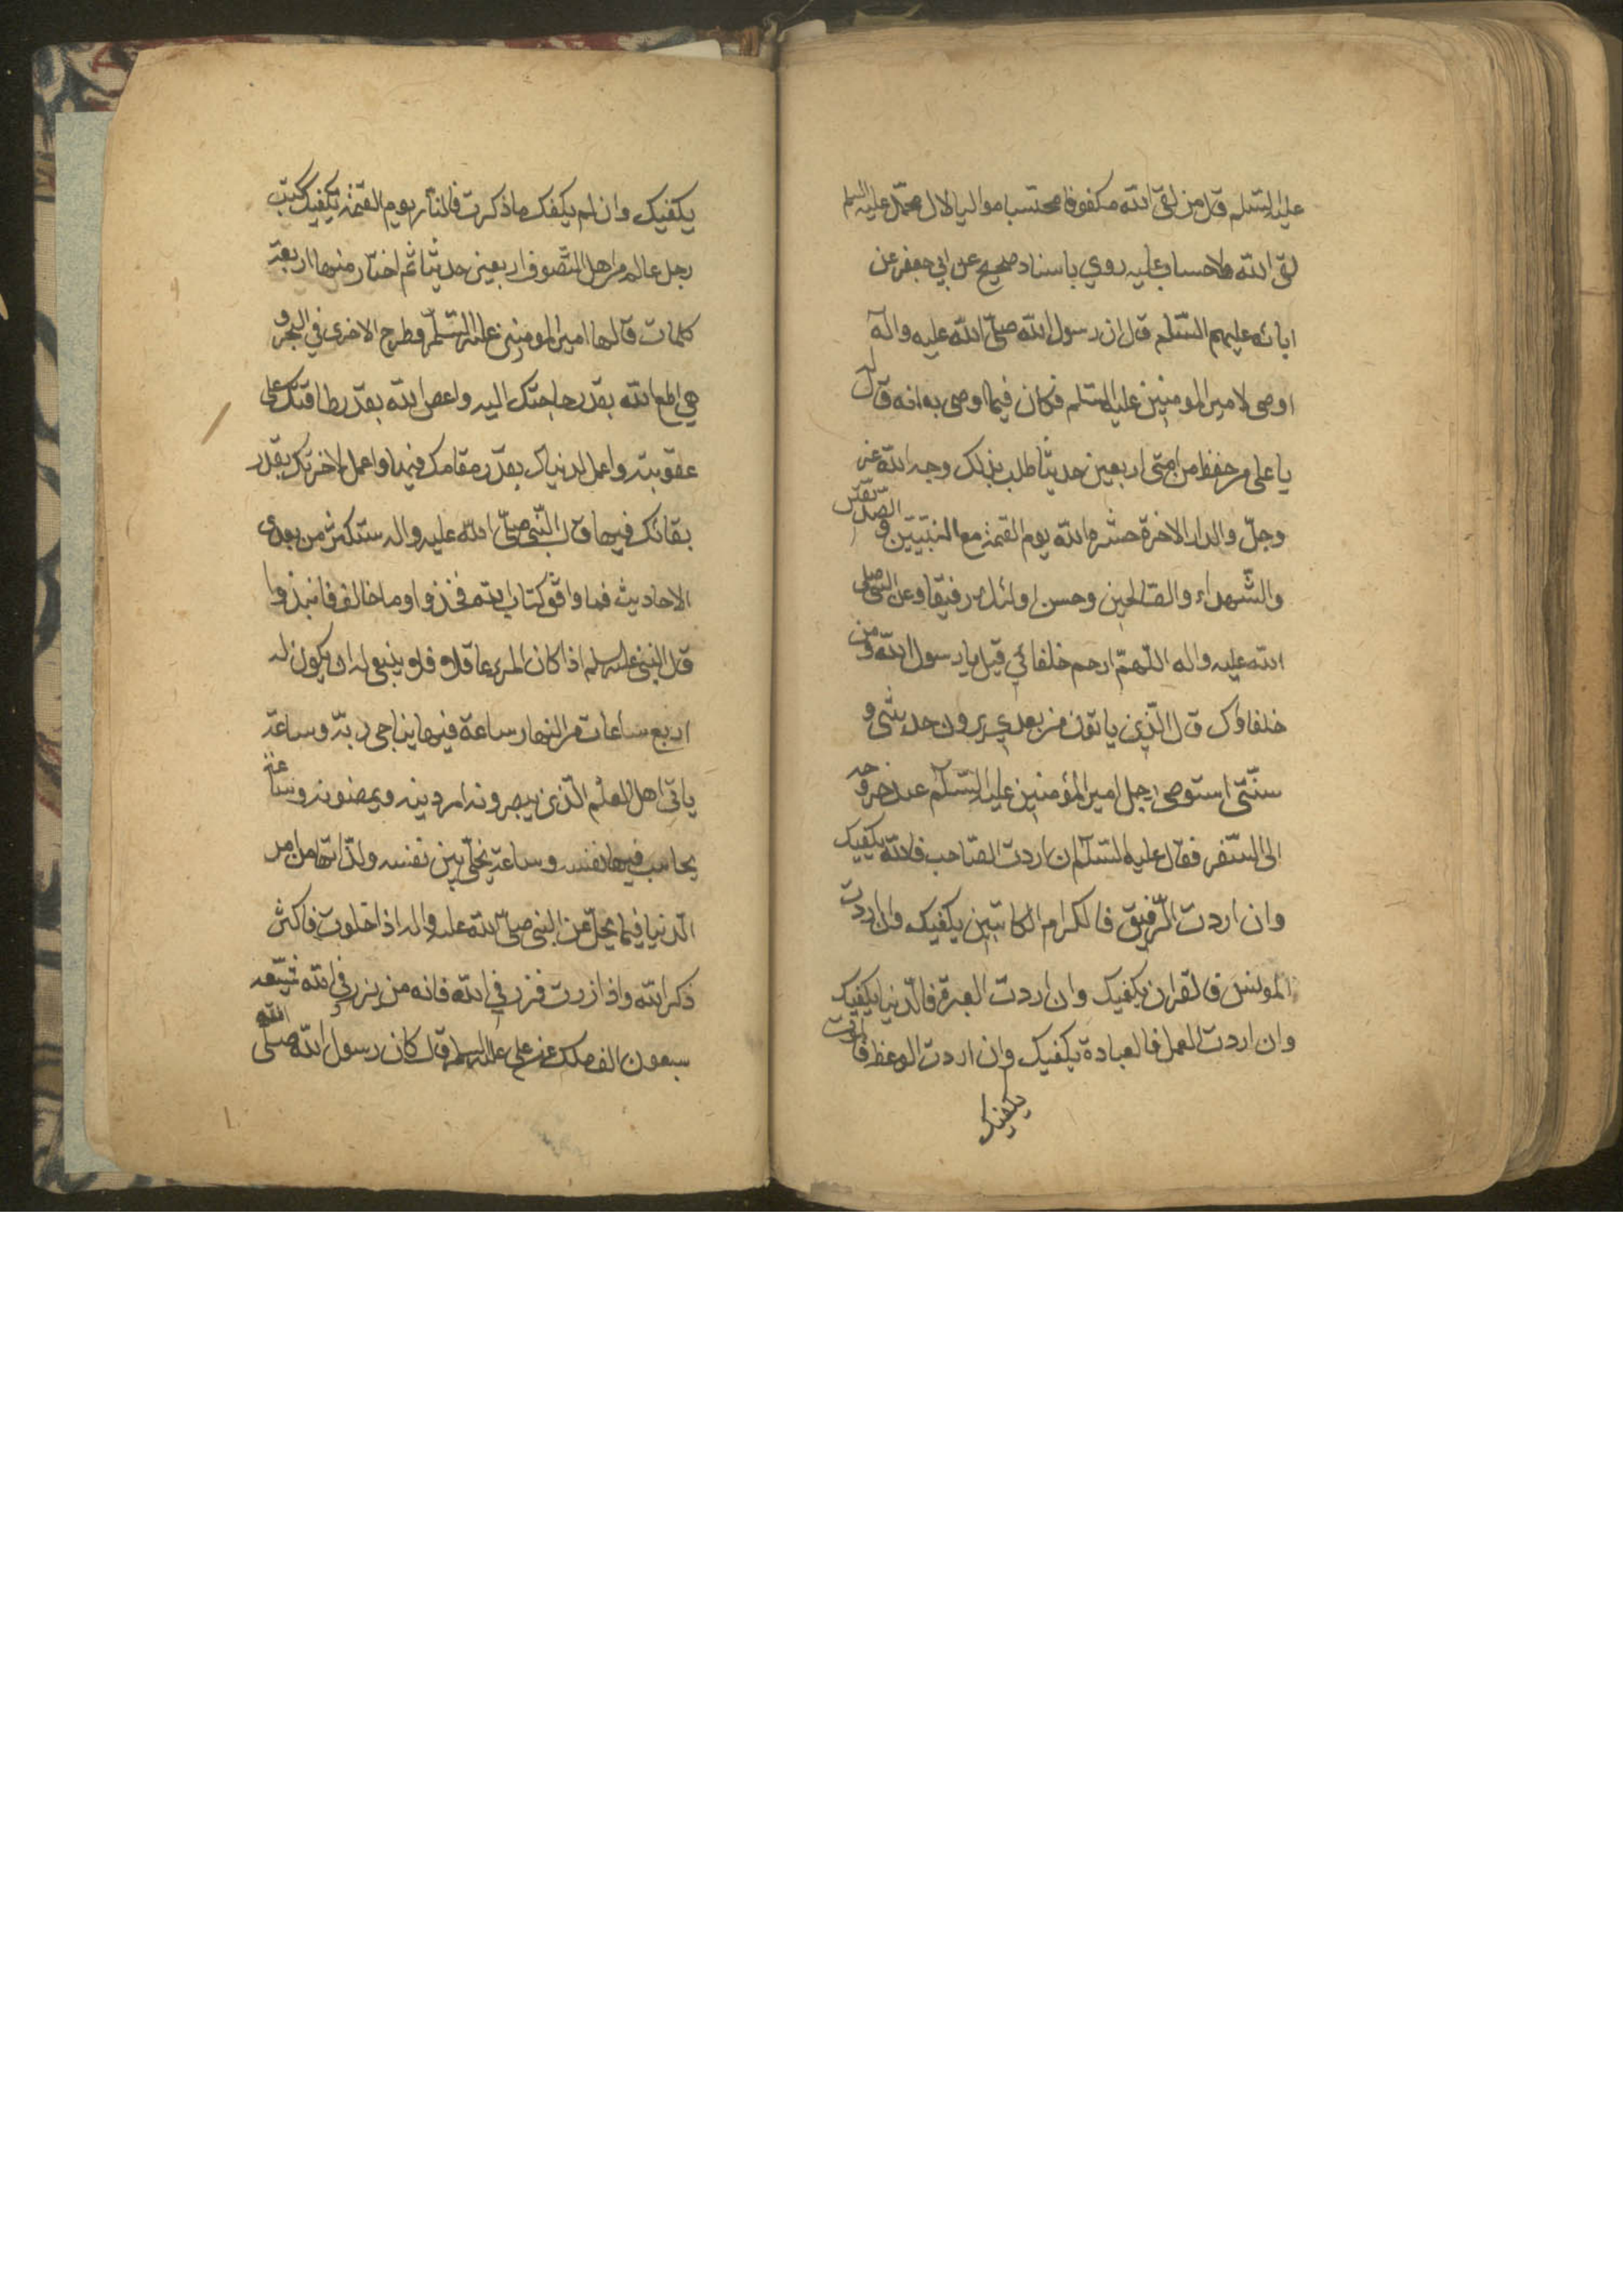 عليه السلم قال من لقى الله مكفوفا محتسبا مواليا لال محمد عليه السلم
لقى الله ولا حساب عليه روي باسناد صحيح عن ابي جعفر عن
ابائه عليهم السلم قال ان رسول الله صلى الله عليه واله
اوصى لامير المومنين عليه السلم فكان فيما اوصى به انه قال له
يا على من حفظ من امتى اربعين حديثا طلب بذلك وجه الله عز
وجل والدار الاخرة حشره الله يوم القيمة مع النبيين و الصديقين
والشهداء والصالحين وحسن اولئك رفيقا وعن النبى صلى
الله عليه واله اللهم ارحم خلفائي قيل يا رسول الله و من
خلفاؤك قال الذين ياتون من بعدي يروون حديثى و
سنتى استوصى رجل امير المؤمنين عليه السلم عند خروجه
الى السفر فقال عليه السلم ان اردت الصاحب فالله يكفيك
وان اردت الرفيق فالكرام الكاتبين يكفيك وان اردت
المونس فالقران يكفيك وان اردت العبرة فالدنيا يكفيك
وان اردت العمل فالعبادة يكفيك وان اردت الوعظ فالموت
يكفيك
يكفيك وان لم يكفك ما ذكرت فالنار يوم القيمة تكفيك كتب
رجل عالم من اهل التصوف اربعين حديثا ثم اختار منها اربعة
كلمات قالها امير المومنين عليه السلم وطرح الاخرى في البحر و
هي اطع الله بقدر حاجتك اليه واعص الله بقدر طاقتك على
عقوبته واعمل لدنياك بقدر مقامك فيها واعمل لاخرتك بقدر
بقائك فيها قال النبى صلى الله عليه واله ستكثر من بعدى
الاحاديث فما وافق كتاب الله فخذوا وما خالف فانبذوا
قال النبى عليه سلم اذا كان المرء عاقلا فلا ينبغى له ان يكون له
اربع ساعات من النهار ساعة فيها يناجى ربه وساعة
ياتى اهل العلم الذى يبصرونه امر دينه و وساعة
يحاسب فيها نفسه وساعة يخلى بين نفسه ولذاتها من امر
الدنيا فيما يحل عن النبى صلى الله عليه واله اذا خلوت فاكثر
ذكر الله واذا زرت فزر في الله فانه من يزر في الله شيعه
سبعون الف ملك عن على عليه السلم قال كان رسول الله صلى الله